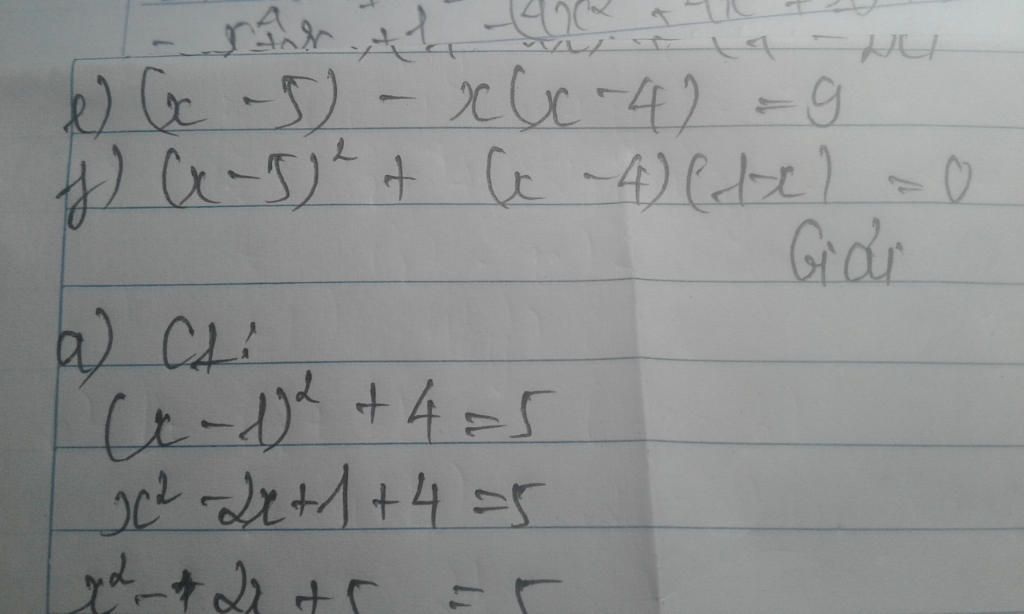 e) (x - 5) - x(x - 4) = 9
f) (x - 5)² + (x - 4)(1 - x) = 0
Giải
a) C1:
(x - 1)² + 4 = 5
x² - 2x + 1 + 4 = 5
x² - 2x + 5 = 5